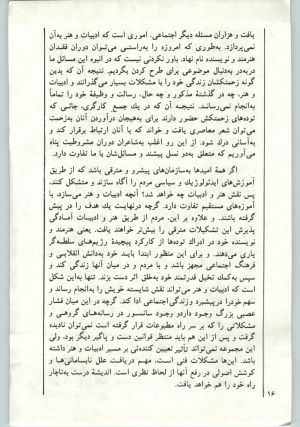 یافت و هزاران مسئله دیگر اجتماعی. اموری است که ادبیات و هنر به‌آن
نمی‌پردازد. به‌طوری که امروزه را به‌راستی می‌توان دوران فقدان
هنرمند و نویسنده نام نهاد. باور نکردنی نیست که در انبوه این مسائل ما
دربه‌در به‌دنبال موضوعی برای طرح کردن بگردیم. نتیجه آن که بدین
گونه زحمتکشان زندگی خود را با مشکلات بسیار می‌گذرانند و ادبیات
و هنر، چه در گذشته مذکور و چه حال، رسالت و وظیفهٔ خود را تماماً
به‌انجام نمی‌رساند. نتیجه آن که در یك جمع کارگری، جائی که
توده‌های زحمتکش حضور دارند برای به‌هیجان درآوردن آنان به‌زحمت
می‌توان شعر معاصری یافت و خواند که با آنان ارتباط برقرار کند و
به‌آسانی درك شود. از این رو اغلب به‌شاعران دوران مشروطیت پناه
می‌آوریم که متعلق به‌دو نسل پیشند و مسائلشان با ما تفاوت دارد.
اگر همهٔ امیدها به‌سازمان‌های پیشرو و مترقی باشد که از طریق
آموزش‌های ایدئولوژیك و سیاسی مردم را آگاه سازند و متشکل کنند،
پس نقش هنر و ادبیات چه خواهد شد؟ آنچه ادبیات و هنر می‌سازد، با
آموزه‌های مستقیم تفاوت دارد. گرچه درنهایت یك هدف را در پیش
گرفته باشند. و علاوه بر این، مردم از طریق هنر و ادبیات آمادگی
پذیرش این تشکیلات مترقی را بیش‌تر خواهند یافت. یعنی هنرمند و
نویسنده خود در ادراك توده‌ها از کارکرد پیچیدهٔ رژیم‌های سلطه‌گر
یاری می‌دهند. و برای این منظور ابتدا باید خود به‌دانش انقلابی و
فرهنگ اجتماعی مجهز باشند و با مردم و در میان آنها زندگی کنند و
سپس به‌کمك تخیل قدرتمند خود به‌خلق اثر دست بزند. تنها به‌این شکل
است که ادبیات و هنر می‌تواند نقش شایسته خویش را به‌انجام رساند و
سهم خود را در پیشبرد و زندگی اجتماعی ادا کند. گرچه در این میان فشار
عصبی بزرگ وجود دارد و وجود سانسور در رسانه‌های گروهی و
مشکلاتی را که بر سر راه مطبوعات قرار گرفته است نمی‌توان نادیده
گرفت و پس از این هم باید منتظر قوانین دست و پاگیر دیگر بود. ولی
این مجموعه نمی‌تواند تأثیر تعیین کننده‌تی بر مسیر ادبیات و هنر داشته
باشد. این‌ها مشکلات فنی است. مهم، دریافت علل نابسامانی‌ها و
کوشش اصولی در رفع آنها از لحاظ نظری است. اندیشهٔ درست به‌ناچار
راه خود را هم خواهد یافت.
۱۶